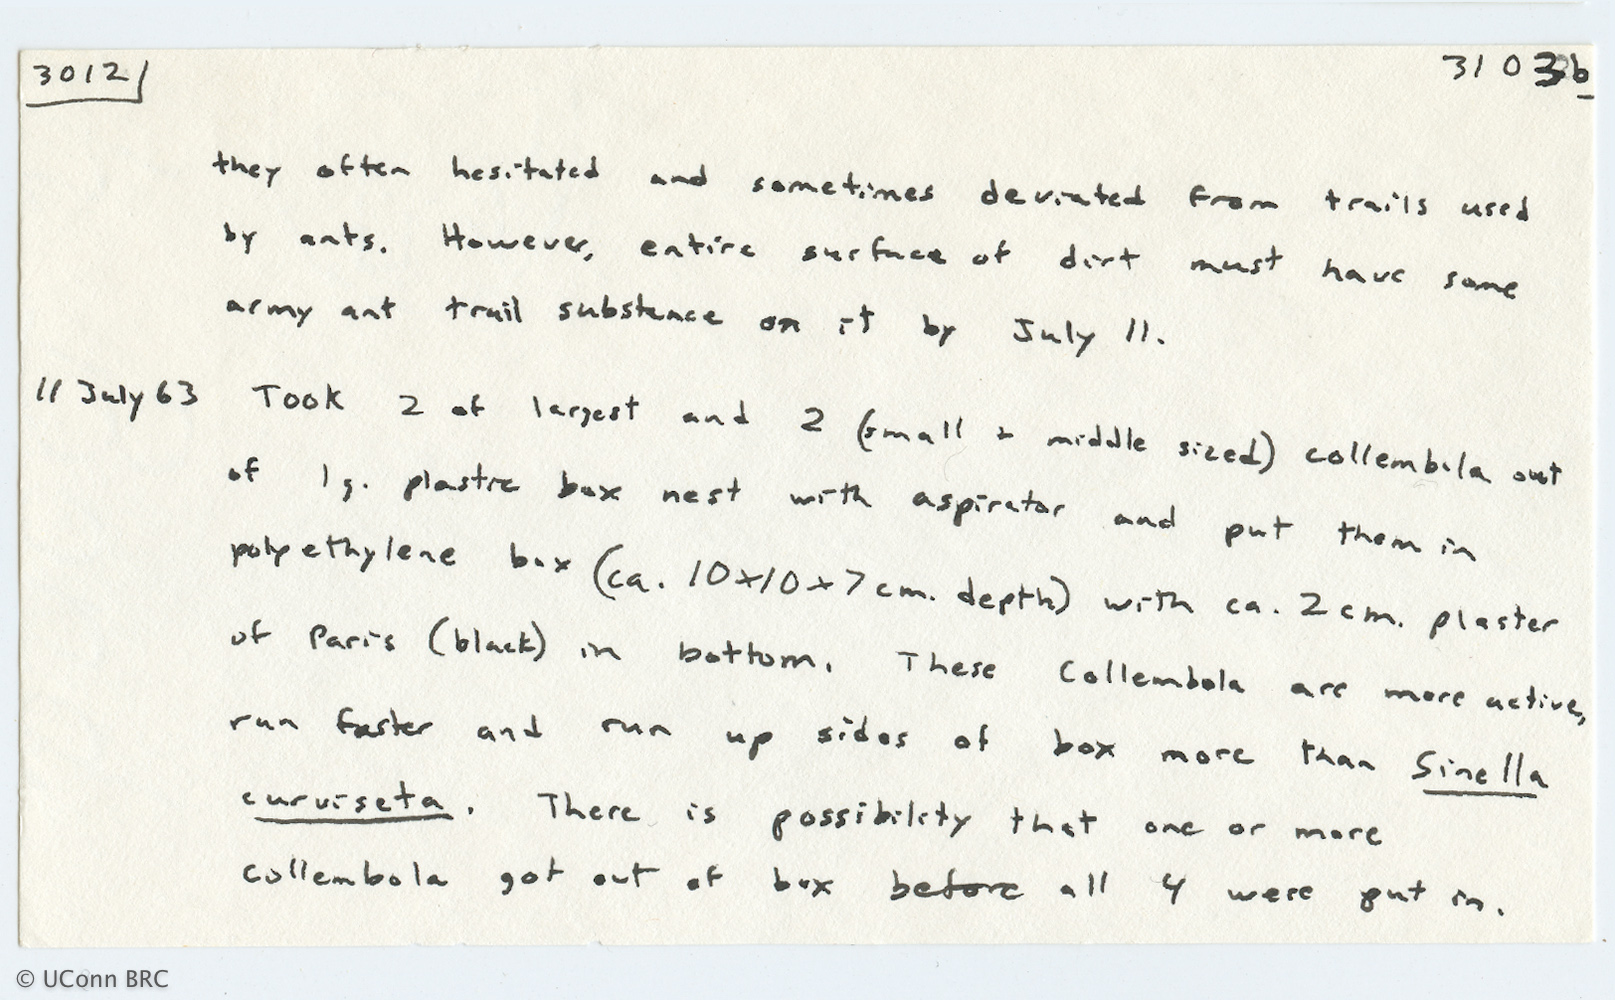 3012 3103b
they often hesitated and sometimes deviated from trails used
by ants. However, entire surface of dirt must have some
army ant trail substance on it by July 11.
11 July 63 Took 2 of largest and 2 (small + middle sized) collembola out
of lg. plastic box nest with aspirator and put them in
polyethylene box (ca. 10x10x7cm. depth) with ca. 2cm. plaster
of Paris (black) in bottom. These Collembola are more active,
run faster and run up sides of box more than Sinella
curviseta. There is possibility that one or more
collembola got out of box before all 4 were put in.
© UConn BRC